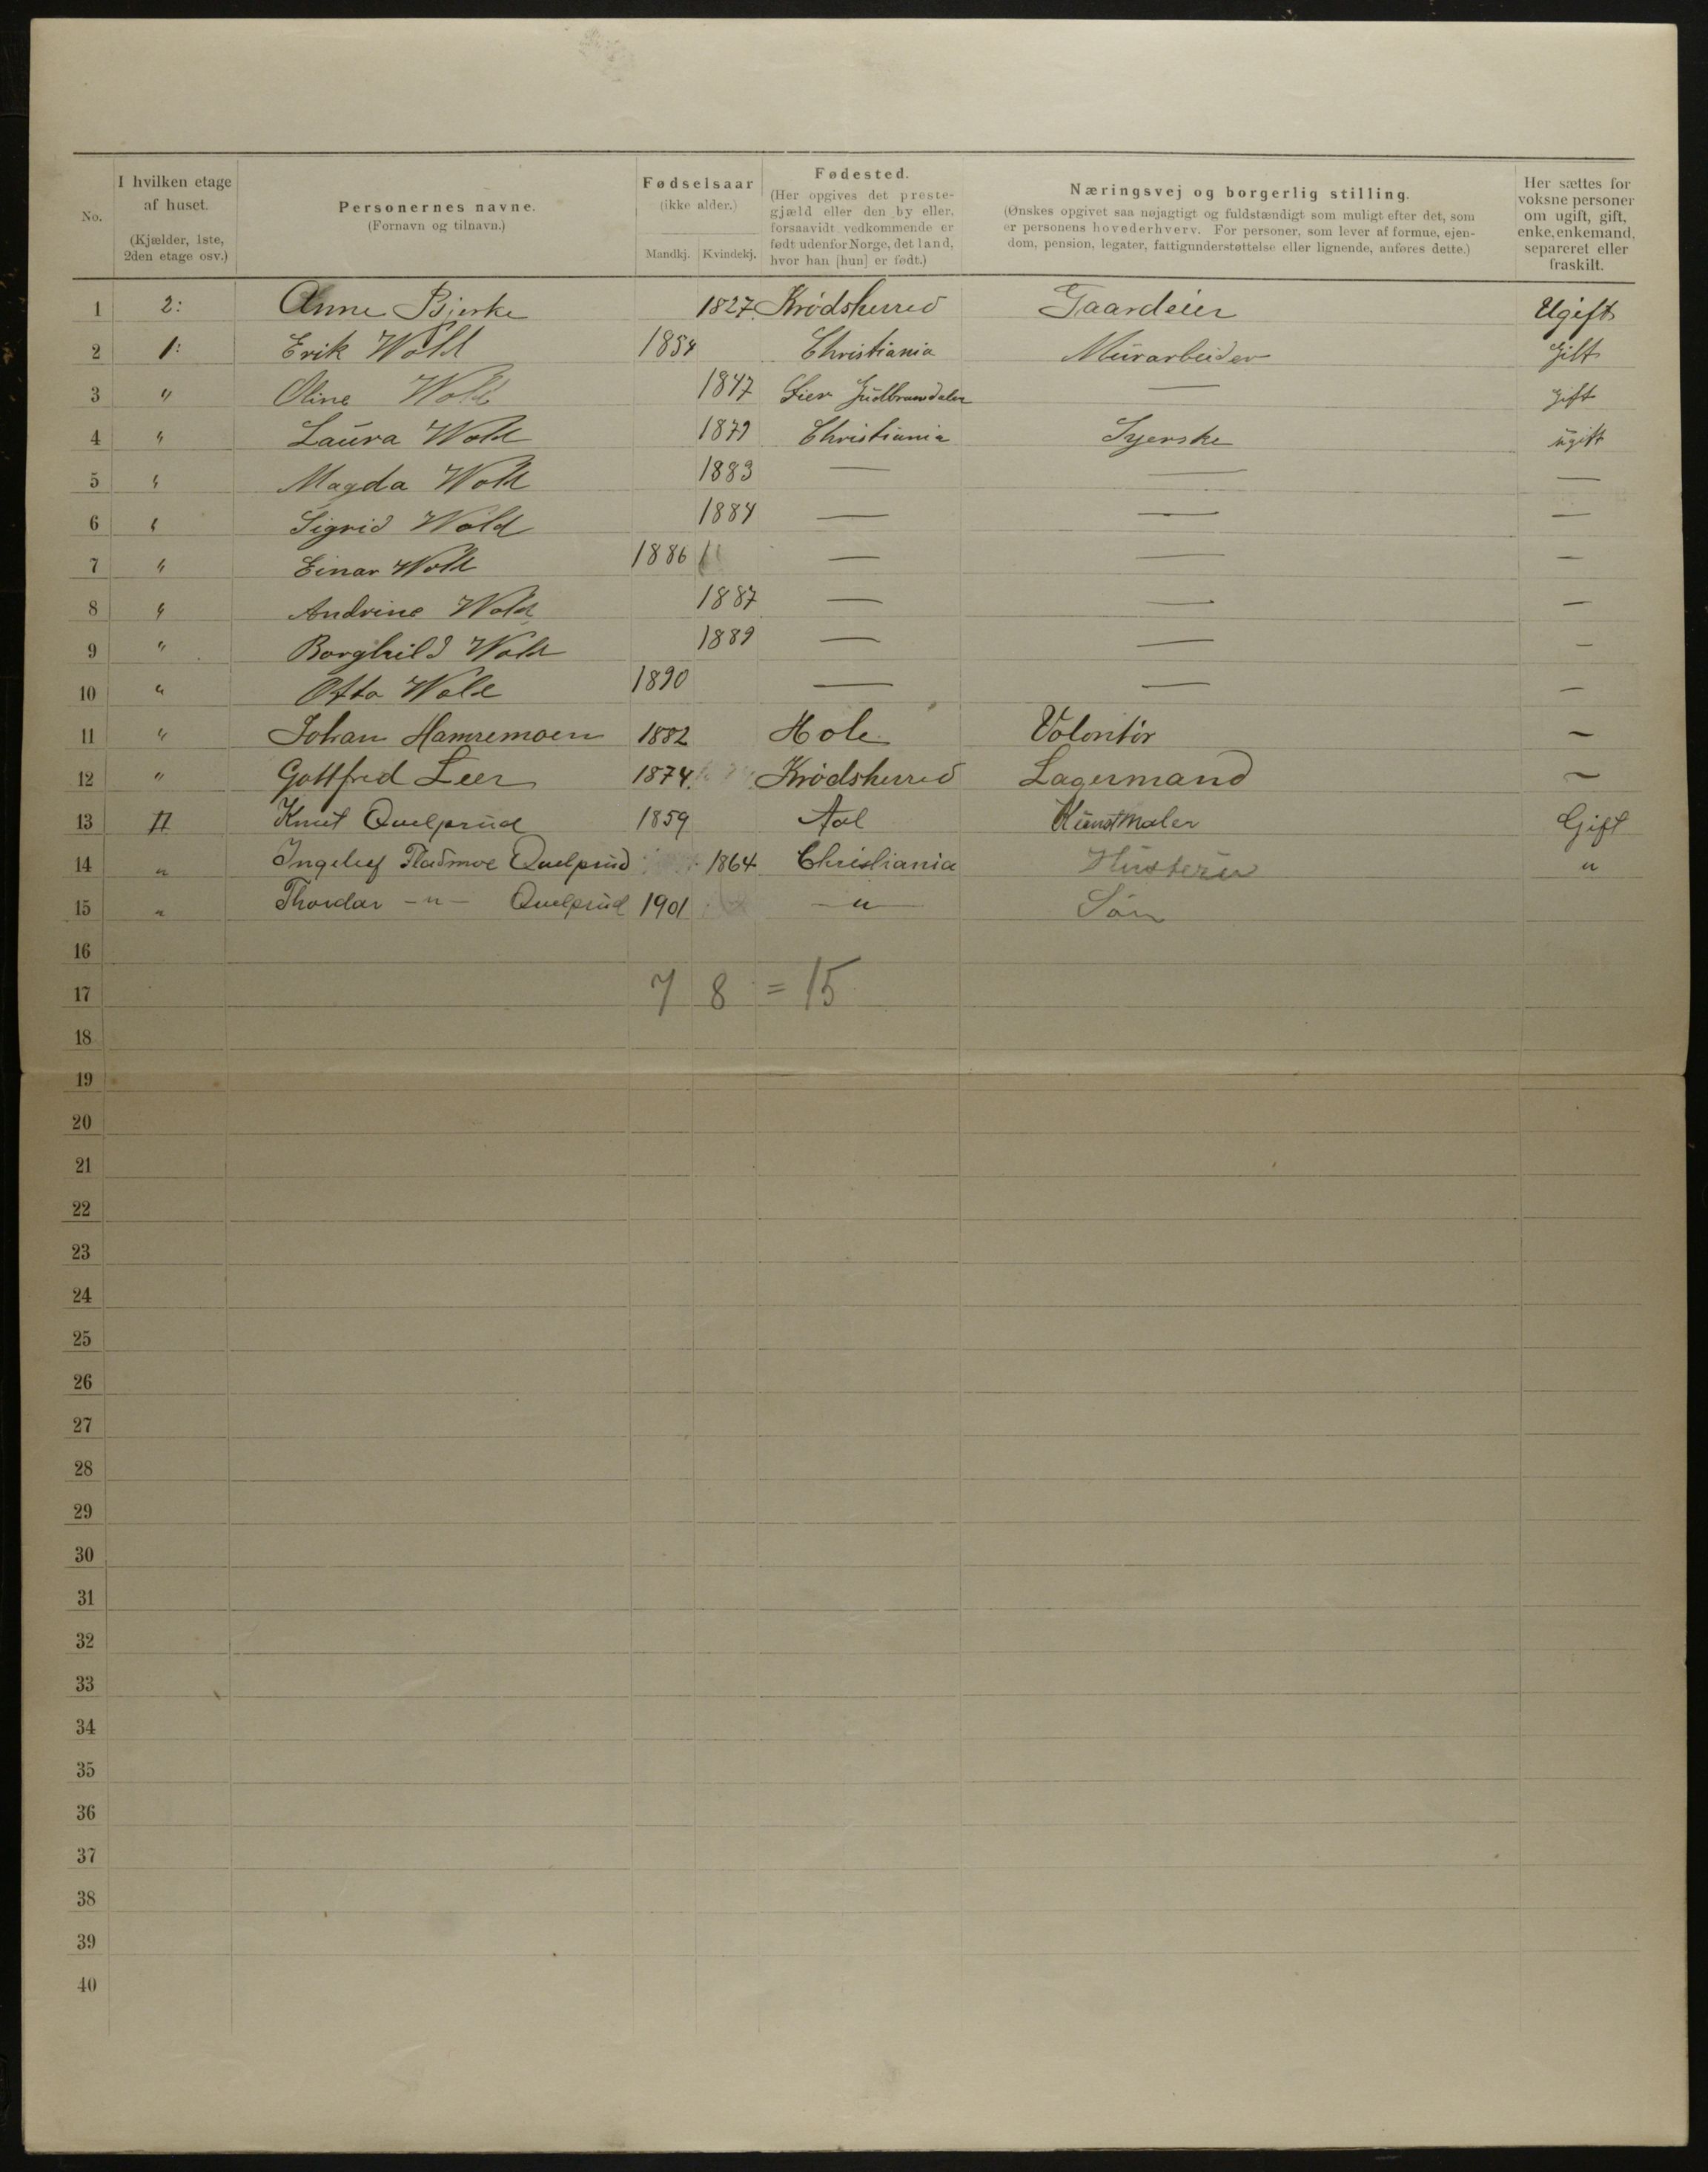 No. I hvilken etage af huset. (Kjælder, 1ste, 2den etage osv.) Personernes navne. (Fornavn og tilnavn.) Fødselsaar (ikke alder.) Mandkj. Kvindekj. Fødested. (Her opgives det prestegjæld eller den by eller, forsaavidt vedkommende er født udenfor Norge, det land, hvor han [hun] er født.) Næringsvej og borgerlig stilling. (Ønskes opgivet saa nøjagtigt og fuldstændigt som muligt efter det, som er personens hovederhverv. For personer, som lever af formue, ejendom, pension, legater, fattigunderstøttelse eller lignende, anføres dette.) Her sættes for voksne personer om ugift, gift, enke, enkemand, separeret eller fraskilt.
1 2: Anne Bjerke 1827 Krødsherred Gaardeier Ugift
2 1: Erik Wold 1854 Christiania Murarbeider Gift
3 " Oline Wold 1847 Gudbrandalen — gift
4 " Laura Wold 1879 Christiania Syerske ugift
5 " Magda Wold 1883 — — —
6 " Sigrid Wold 1884 — — —
7 " Einar Wold 1886 — — —
8 " Andrine Wold 1887 — — —
9 " Borghild Wold 1889 — — —
10 " Otto Wold 1890 — — —
11 " Johan Hamremoen 1882 Hole Volontør —
12 " Gottfred Leer 1874. Krødsherred Lagermand —
13 II Knut Quelprud 1859 Aal Kunstmaler Gift
14 " Quelprud 1864 Christiania Hustru "
15 " Thordar -"- Quelprud 1901 -"- Søn
16
17 7 8 = 15
18
19
20
21
22
23
24
25
26
27
28
29
30
31
32
33
34
35
36
37
38
39
40